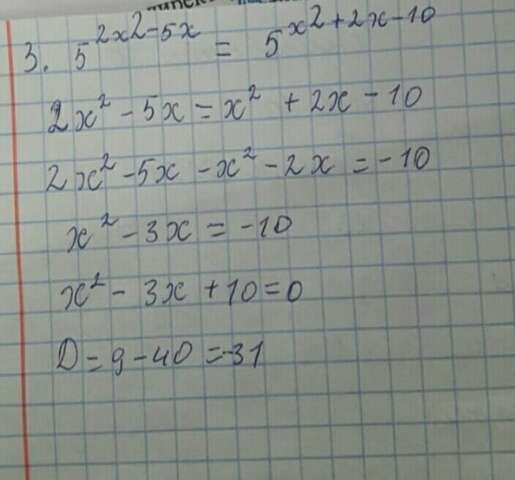 3. 5^{2x^2-5x} = 5^{x^2+2x-10}
2x² - 5x = x² + 2x - 10
2x² - 5x - x² - 2x = -10
x² - 3x = -10
x² - 3x + 10 = 0
D = 9 - 40 = -31